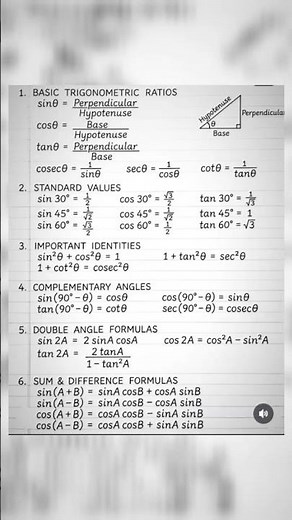 1. BASIC TRIGONOMETRIC RATIOS
sinθ = Perpendicular / Hypotenuse
cosθ = Base / Hypotenuse
tanθ = Perpendicular / Base
Hypotenuse
Perpendicular
θ
Base
cosecθ = 1/sinθ secθ = 1/cosθ cotθ = 1/tanθ
2. STANDARD VALUES
sin 30° = 1/2 cos 30° = √3/2 tan 30° = 1/√3
sin 45° = 1/√2 cos 45° = 1/√2 tan 45° = 1
sin 60° = √3/2 cos 60° = 1/2 tan 60° = √3
3. IMPORTANT IDENTITIES
sin²θ + cos²θ = 1 1 + tan²θ = sec²θ
1 + cot²θ = cosec²θ
4. COMPLEMENTARY ANGLES
sin(90° – θ) = cosθ cos(90° – θ) = sinθ
tan(90° – θ) = cotθ sec(90° – θ) = cosecθ
5. DOUBLE ANGLE FORMULAS
sin 2A = 2 sinA cosA cos 2A = cos²A – sin²A
tan 2A = 2 tanA / 1 – tan²A
6. SUM & DIFFERENCE FORMULAS
sin(A + B) = sinA cosB + cosA sinB
sin(A – B) = sinA cosB – cosA sinB
cos(A + B) = cosA cosB – sinA sinB
cos(A – B) = cosA cosB + sinA sinB